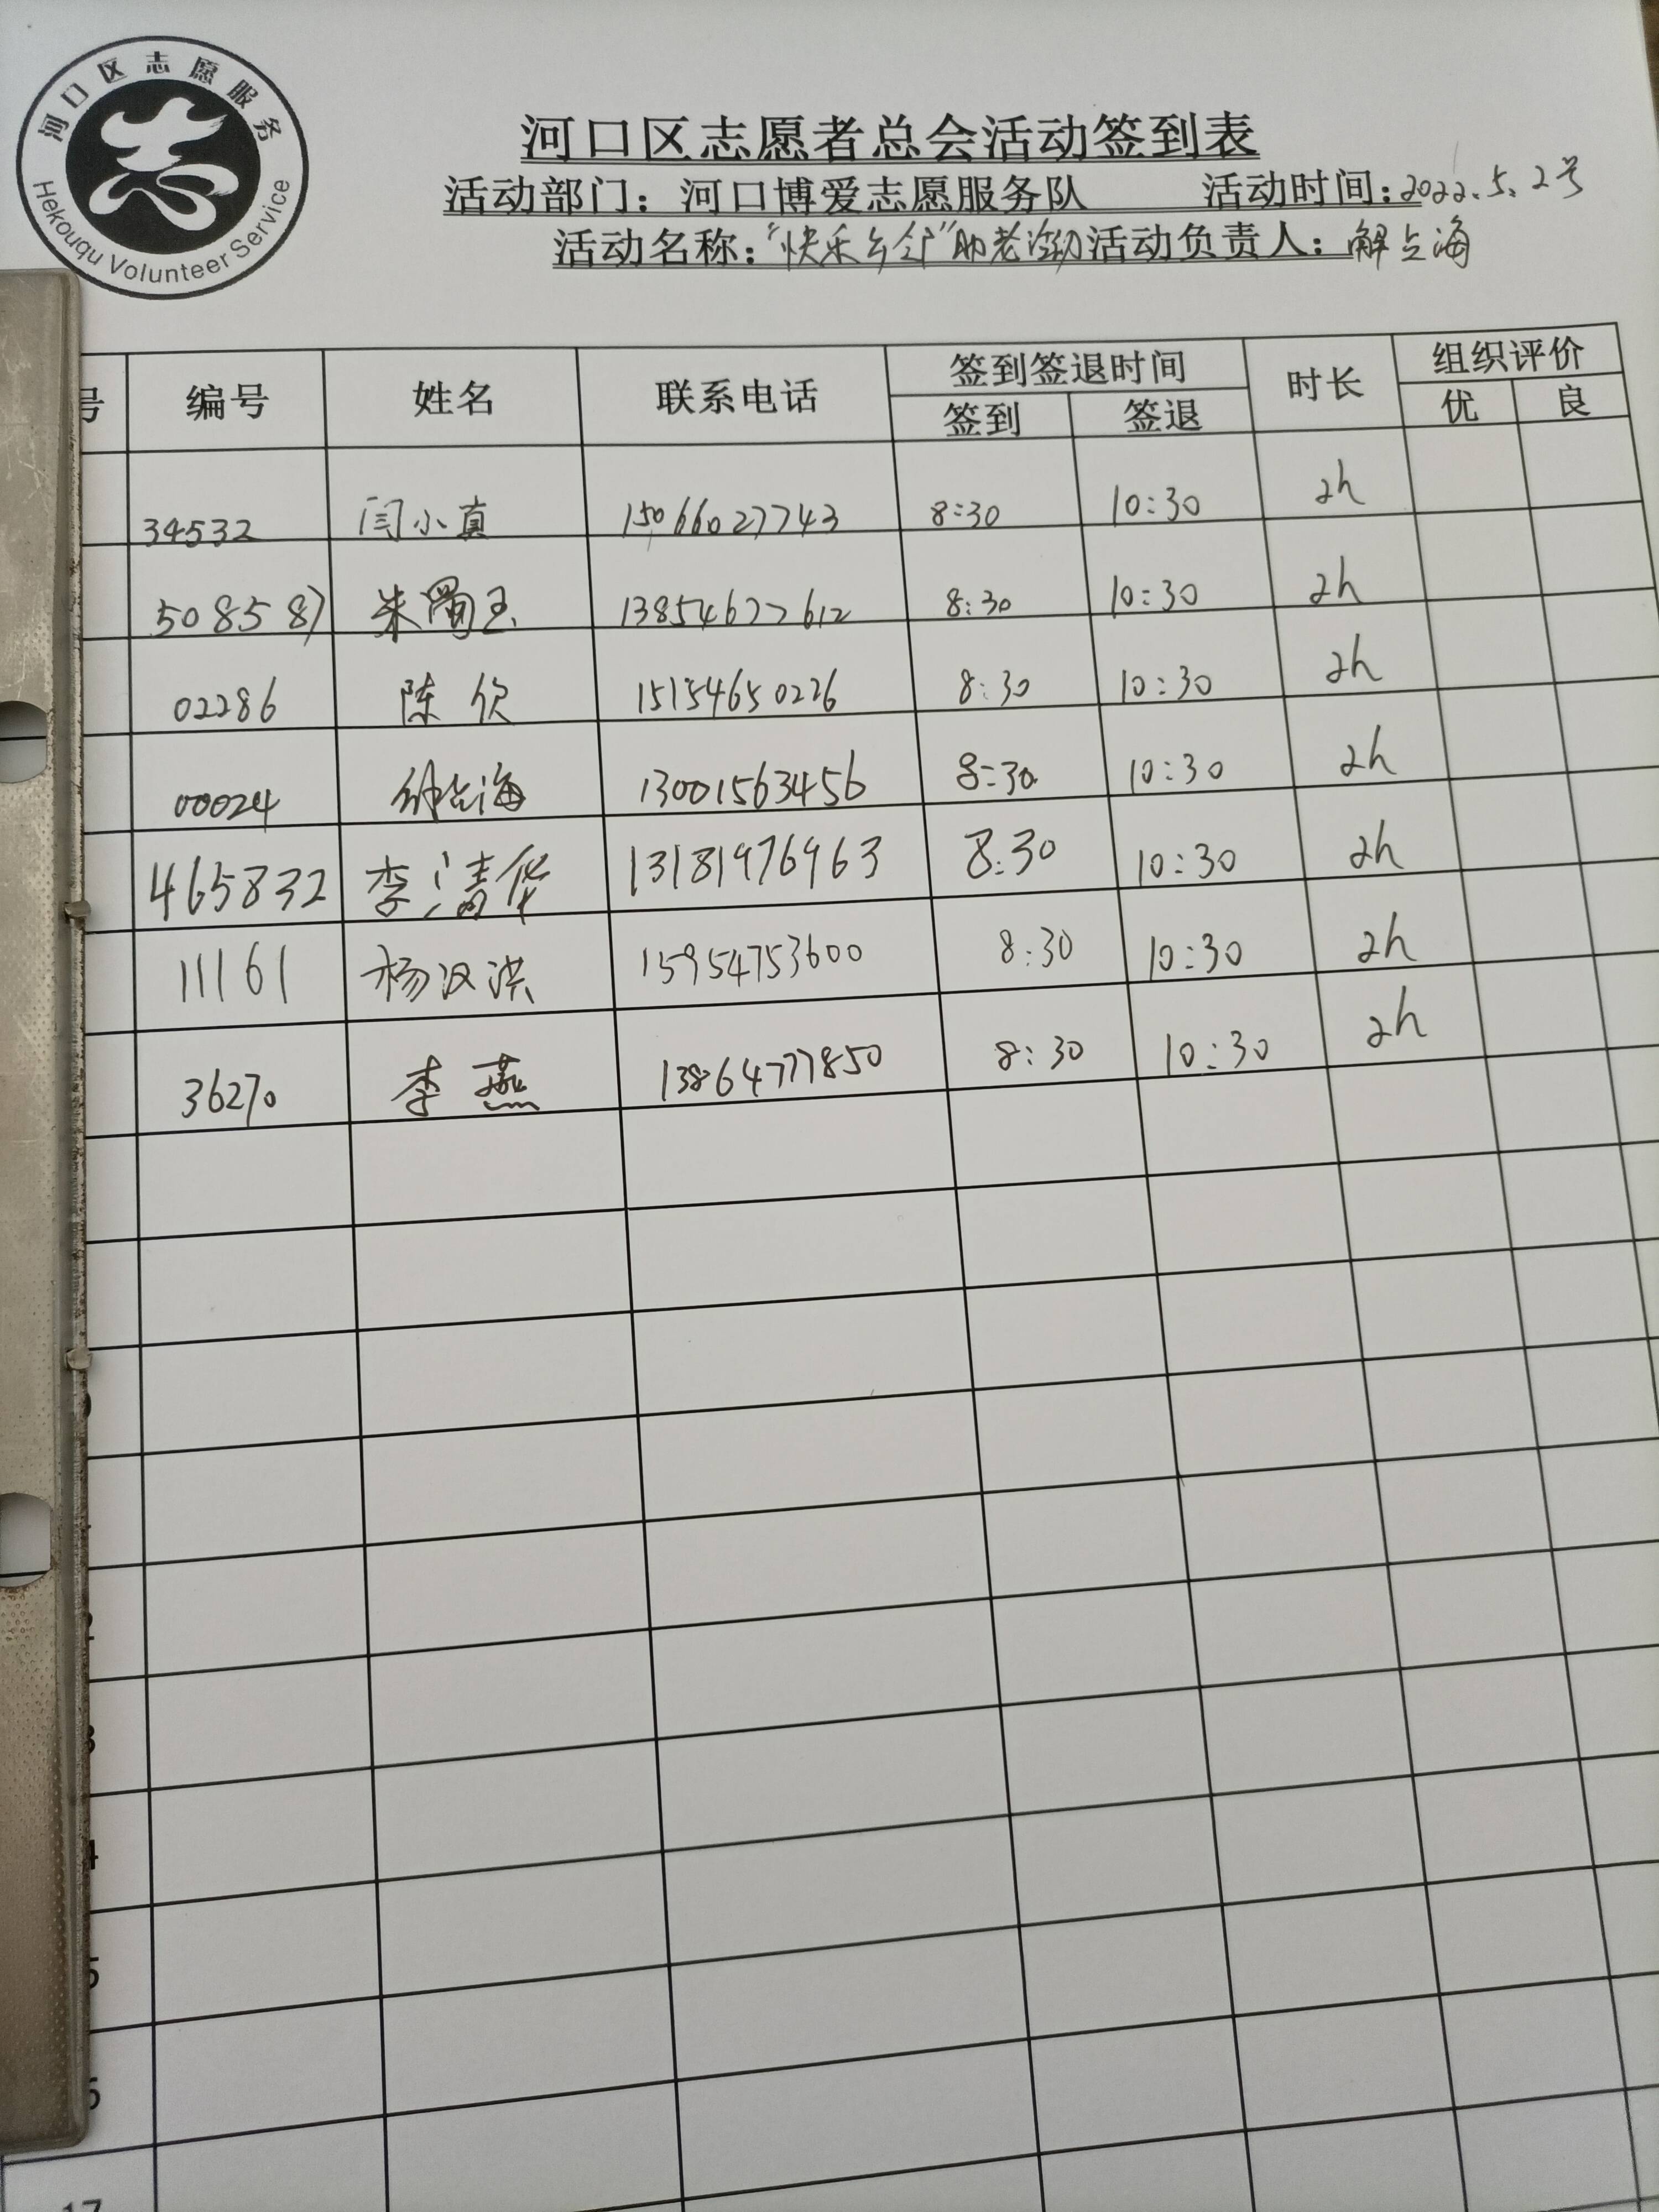 河口区志愿服务
Hekouqu Volunteer Service
河口区志愿者总会活动签到表
活动部门：河口博爱志愿服务队 活动时间：2022.5.2号
活动名称："快乐乡邻"助老活动 活动负责人：解占海
号 编号 姓名 联系电话 签到签退时间 时长 组织评价
签到 签退 优 良
34532 闫小真 15066027743 8:30 10:30 2h
508587 朱蜀玉 13854677612 8:30 10:30 2h
02286 陈欣 15154650226 8:30 10:30 2h
00024 解占海 13001563456 8:30 10:30 2h
465832 李清华 13181976963 8:30 10:30 2h
11161 杨汉洪 15954753600 8:30 10:30 2h
36270 李燕 13864777850 8:30 10:30 2h
3
4
5
6
17